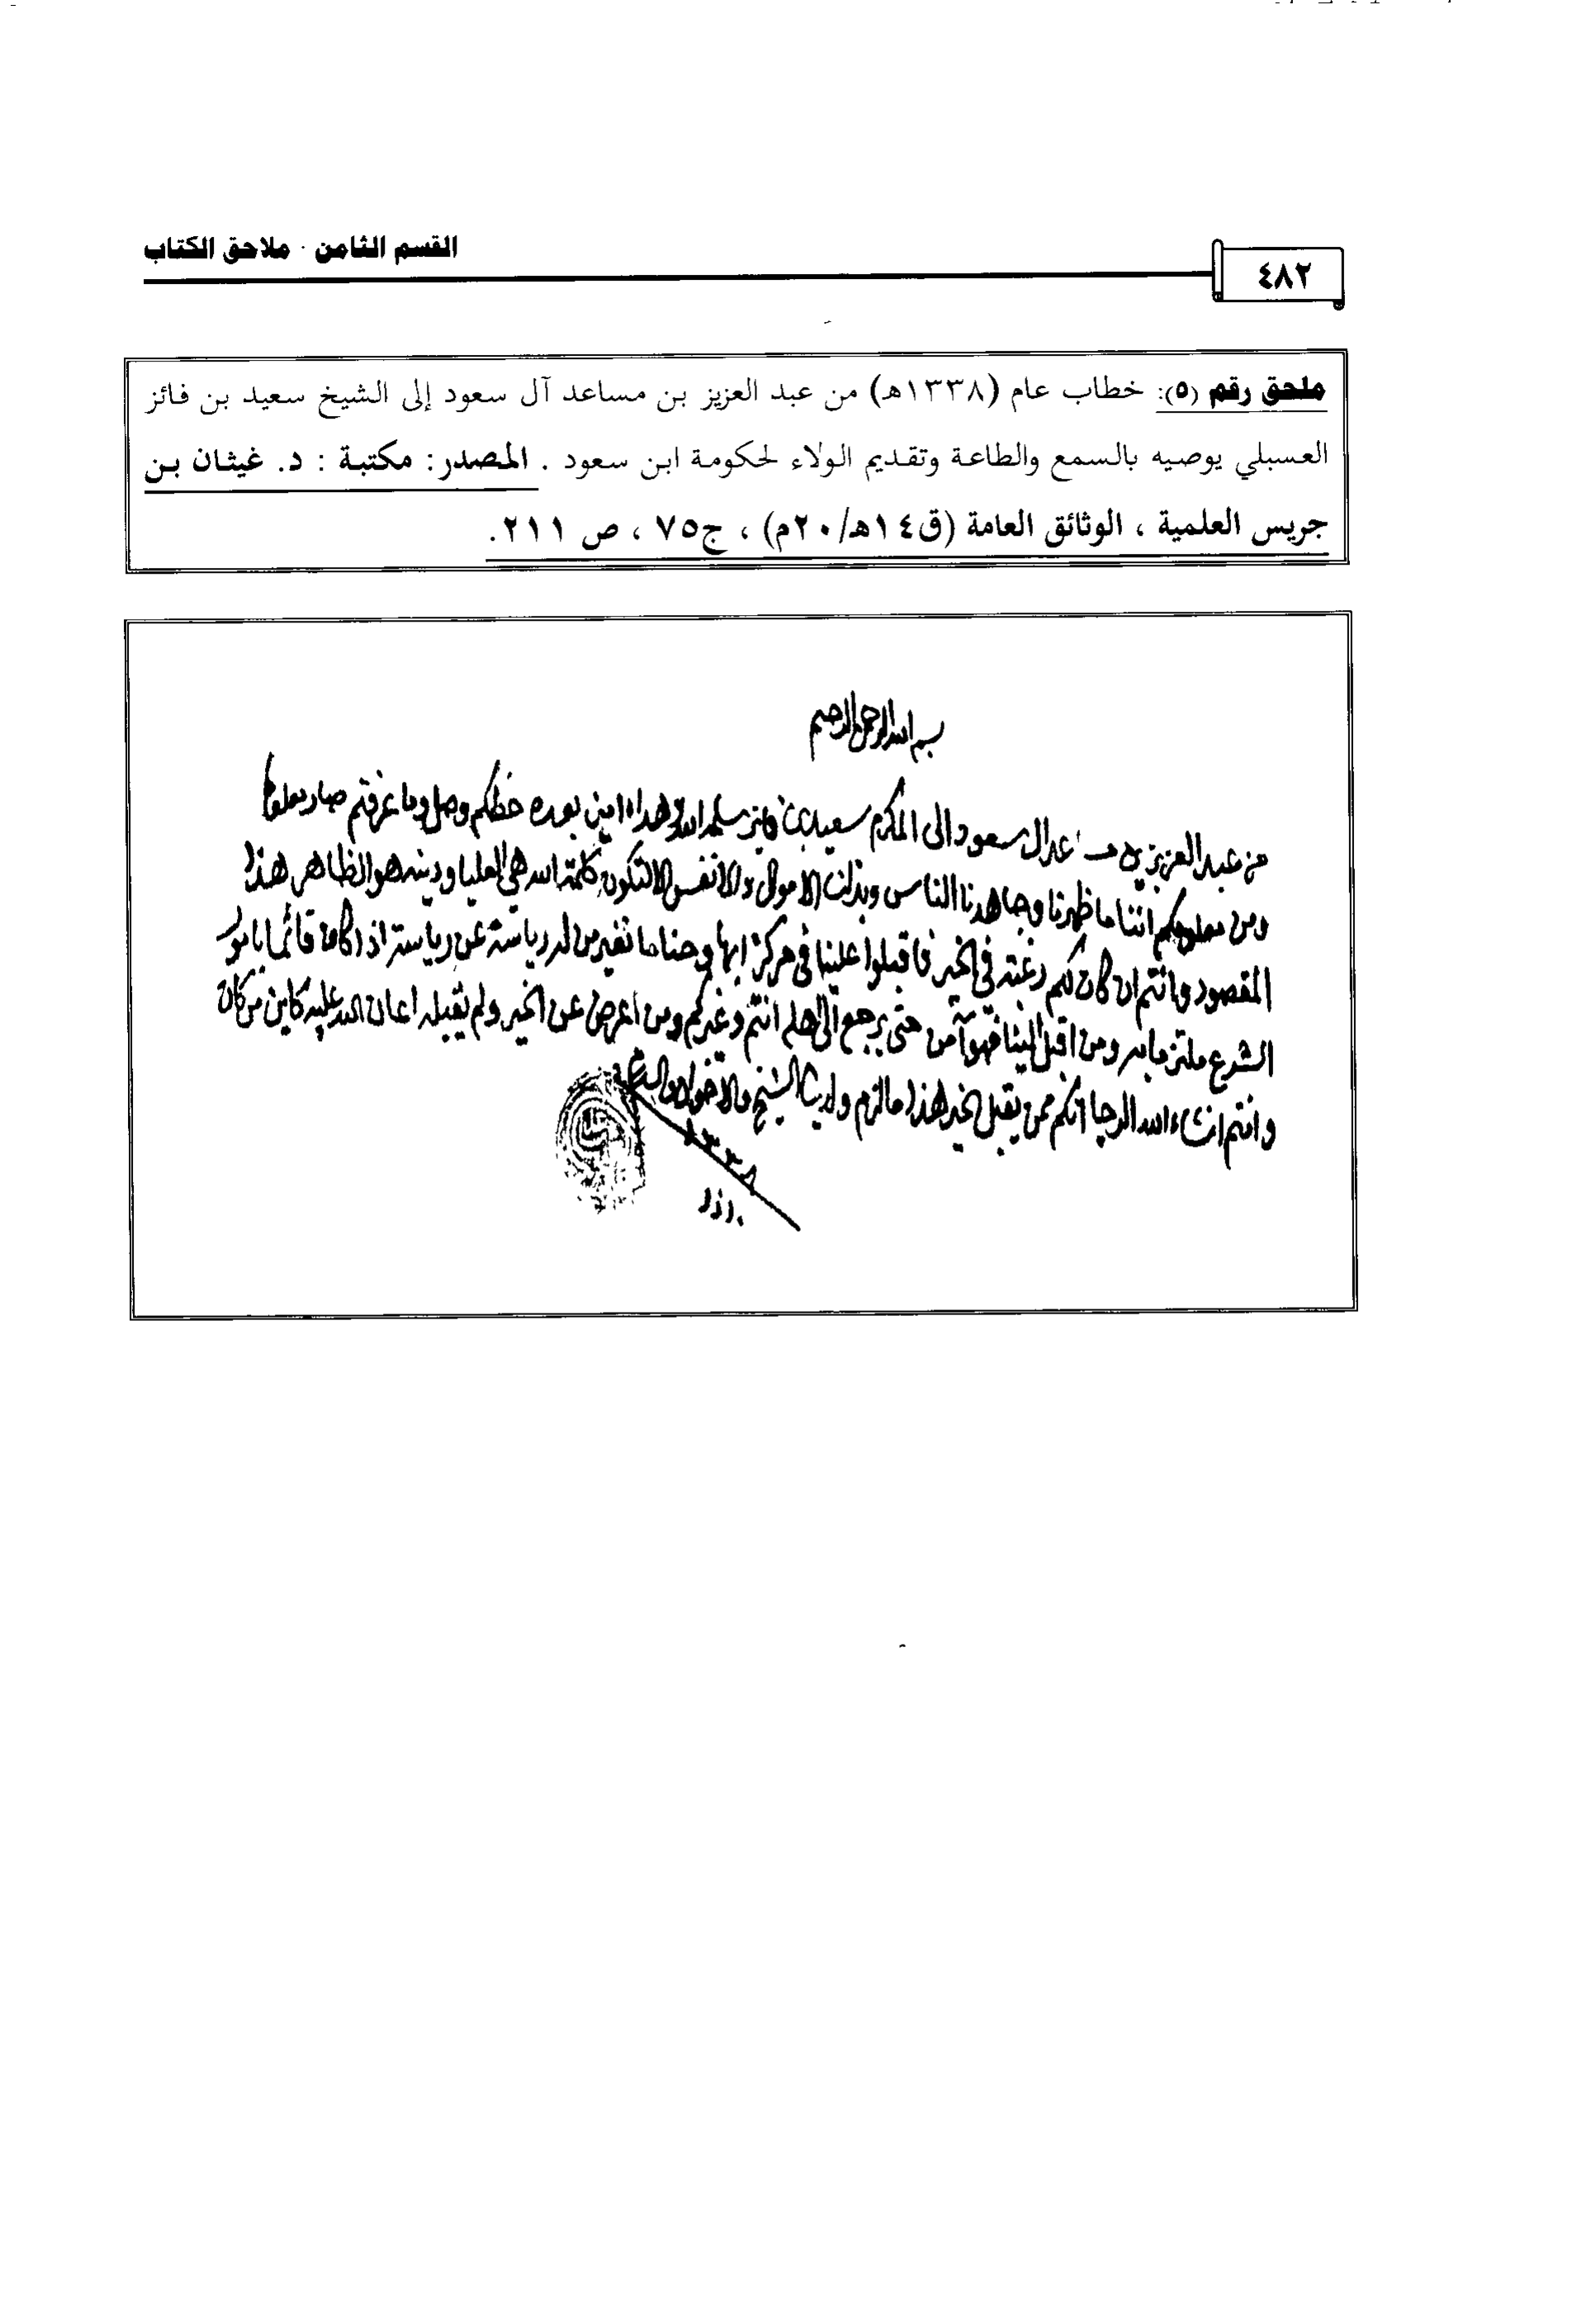 القسم الثامن - ملاحق الكتاب
٤٨٢
ملحق رقم (٥): خطاب عام (١٣٣٨هـ) من عبد العزيز بن مساعد آل سعود إلى الشيخ سعيد بن فائز
العسبلي يوصيه بالسمع والطاعة وتقديم الولاء لحكومة ابن سعود . المصدر: مكتبة : د. غيثان بن
جريس العلمية ، الوثائق العامة (ق١٤هـ/٢٠م) ، ج٧٥ ، ص ٢١١.
بسم الله الرحمن الرحيم
من عبد العزيز بن مساعد ال سعود الى المكرم سعيد بن فايز سلمه الله وهداه امين بعده خطكم وصل وما عرفتم صار معلوما
ومن معلومكم اننا ما ظهرنا وجاهدنا الناس وبذلنا الاموال والانفس الا لتكون كلمة الله هي العليا ودينه هو الظاهر هذا
المقصود وانتم ان كان لكم رغبة في الخير فاقبلوا علينا في مركز ابها وحنا ما نغير من له رياسة عن رياسته اذا كان قائما بامور
الشرع ملتزما به ومن اقبل الينا فهو آمن حتى يرجع الى اهله انتم وغيركم ومن اعرض عن الخير ولم يقبله اعان الله عليه كاين من كان
وانتم انشاء الله الرجا انكم ممن يقبل الخير هذا ما لزم ولدينا الشيخ والاخوان والسلام
١٣٣٨